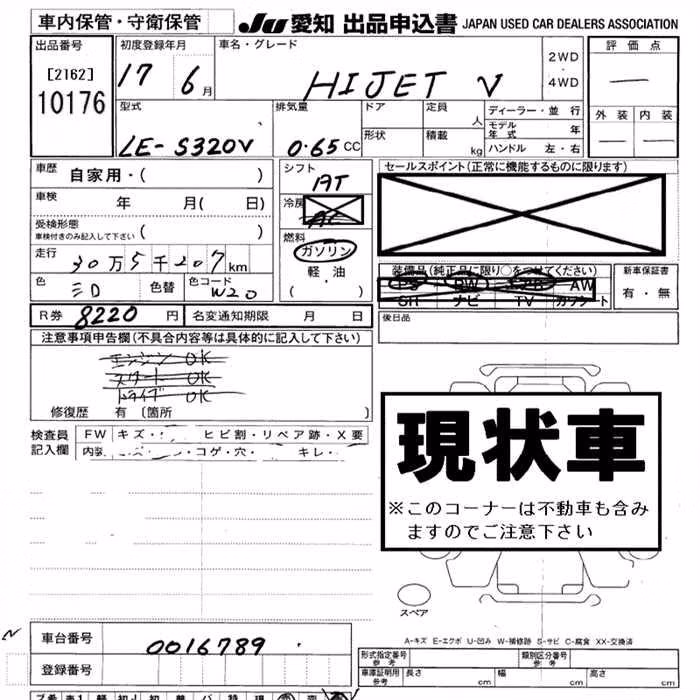 車内保管・守衛保管 JU 愛知 出品申込書 JAPAN USED CAR DEALERS ASSOCIATION
出品番号 初度登録年月 車名・グレード 評価点
[2162] 17 6月 HIJET V 2WD・4WD —
10176 外装 内装
型式 排気量 ドア 定員 人 ディーラー・並行
LE-S320V 0.65 CC 形状 積載 kg モデル年式 年
ハンドル 左・右 — —
車歴 自家用・( ) シフト AT セールスポイント(正常に機能するものに限ります)
車検 年 月( 日) 冷房 AC
受検形態 車検付きのみ記入して下さい ( ) 燃料 ガソリン
走行 30万5千207km 軽油
色 ミD 色替 色コード W20 ・( )
装備品(純正品に限り○をつけてください) 新車保証書
PS PW エアB AW 有・無
SH ナビ TV カワシート
R券 8220円 名変通知期限 月 日 後日品
注意事項申告欄(不具合内容等は具体的に記入して下さい)
エンジン OK
スタート OK
ドライブ OK
修復歴 有〔箇所 〕
検査員記入欄 FW キズ・ ヒビ割・リペア跡・X要
内装 ・コゲ・穴・ キレ・
現状車
※このコーナーは不動車も含み
ますのでご注意下さい
スペア
A-キズ E-エクボ U-凹み W-補修跡 S-サビ C-腐食 XX-交換済
車台番号 0016789
登録番号
型式指定番号 参考 類別区分番号 参考
車庫証明用 参考 長さ cm 幅 cm 高さ cm